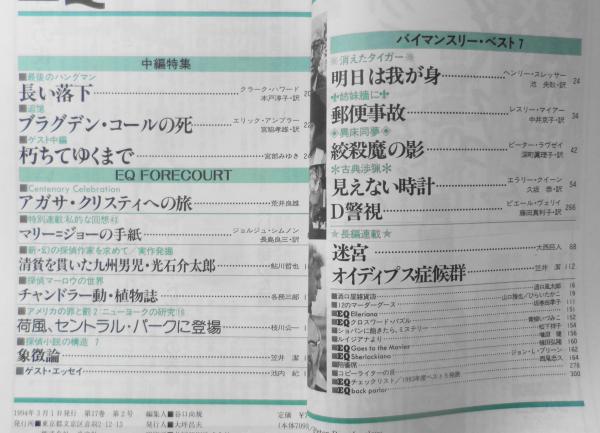 中編特集
■最後のハングマン
長い落下
クラーク・ハワード
木戸淳子・訳
■追憶
ブラグデン・コールの死
エリック・アンブラー
宮脇孝雄・訳
■ゲスト中編
朽ちてゆくまで
宮部みゆき
EQ FORECOURT
■Centenary Celebration
アガサ・クリスティへの旅
荒井良雄
■特別連載 私的な回想
マリー=ジョーの手紙
ジョルジュ・シムノン
長島良三・訳
■新・幻の探偵作家を求めて/実作発掘
清貧を貫いた九州男児・光石介太郎
鮎川哲也
■探偵マーロウの世界
チャンドラー動・植物誌
各務三郎
■アメリカの罪と罰 2 ニューヨークの研究
荷風、セントラル・パークに登場
枝川公一
■探偵小説の構造 7
象徴論
笠井 潔
■ゲスト・エッセイ
池内 紀
1994年3月1日発行 第17巻 第2号
編集人■谷口尚規
定価
発行所■東京都文京区音羽2-12-13
発行人■大坪昌夫
バイマンスリー・ベスト7
消えたタイガー
明日は我が身
ヘンリー・スレッサー
池 央耿・訳
24
姉妹編に
郵便事故
レスリー・マイアー
中井京子・訳
34
異床同夢
絞殺魔の影
ピーター・ラヴゼイ
深町眞理子・訳
42
古典渉猟
見えない時計
エラリー・クイーン
久坂 恭・訳
54
D警視
ピエール・ヴェリイ
藤田真利子・訳
266
★長編連載★
迷宮
大西巨人
68
オイディプス症候群
笠井 潔
112
■酒口屋雑貨店
酒口風太郎
16
■12のマーダーゲース
6
■EQ Elleriana
■EQクロスワード・パズル
151
■ショパンに飽きたら、ミステリー
■ルイジアナより
■EQ Goes to the Movies
■EQ Sherlockiana
■コピーライターの目
■EQチェックリスト/1993年度ベスト5発表
278
■EQ back parlor
300